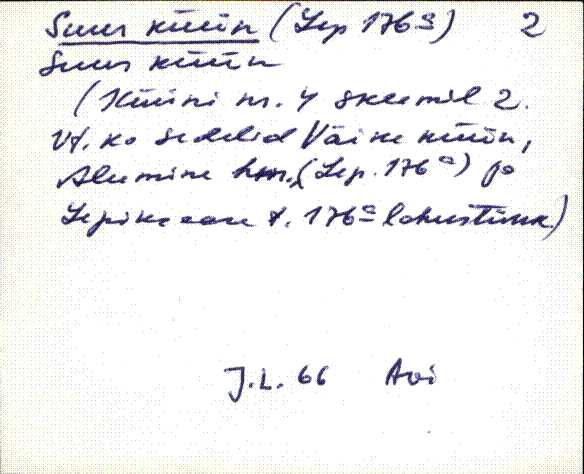 Suur küün (Lep 176 a) 2
Suur küün
(Küüni nr. 4 skeemil 2.
Vt. ka sedelid Väike küün,
Alumine (Lep. 176 a) ja
t. 176 a lahustükk)
J.L. 66 Avi